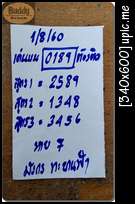 Buddy
1/8/60
เด่นบน 0189 ตัวเดียว
สูตร1 = 2589
สูตร2 = 1348
สูตร3 = 3456
หาย 7
มังกร ทะยานฟ้า
[340x600]upic.me